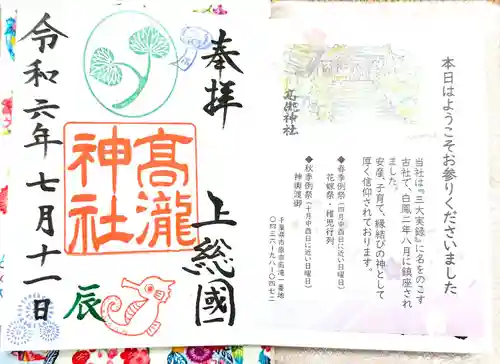 本日はようこそお参りくださいました
当社は『三大実録』に名をのこす
古社で、白鳳二年八月に鎮座され
ました。
安産、子育て、縁結びの神として
厚く信仰されております。
◆春季例祭（四月中酉日に近い日曜日）
花嫁祭・稚児行列
◆秋季例祭（十月中酉日に近い日曜日）
神輿渡御
千葉県市原市高滝一番地
〇四三六-九八-〇四七二
高瀧神社
奉拝
上総國
高瀧
神社
辰
令和六年七月十一日